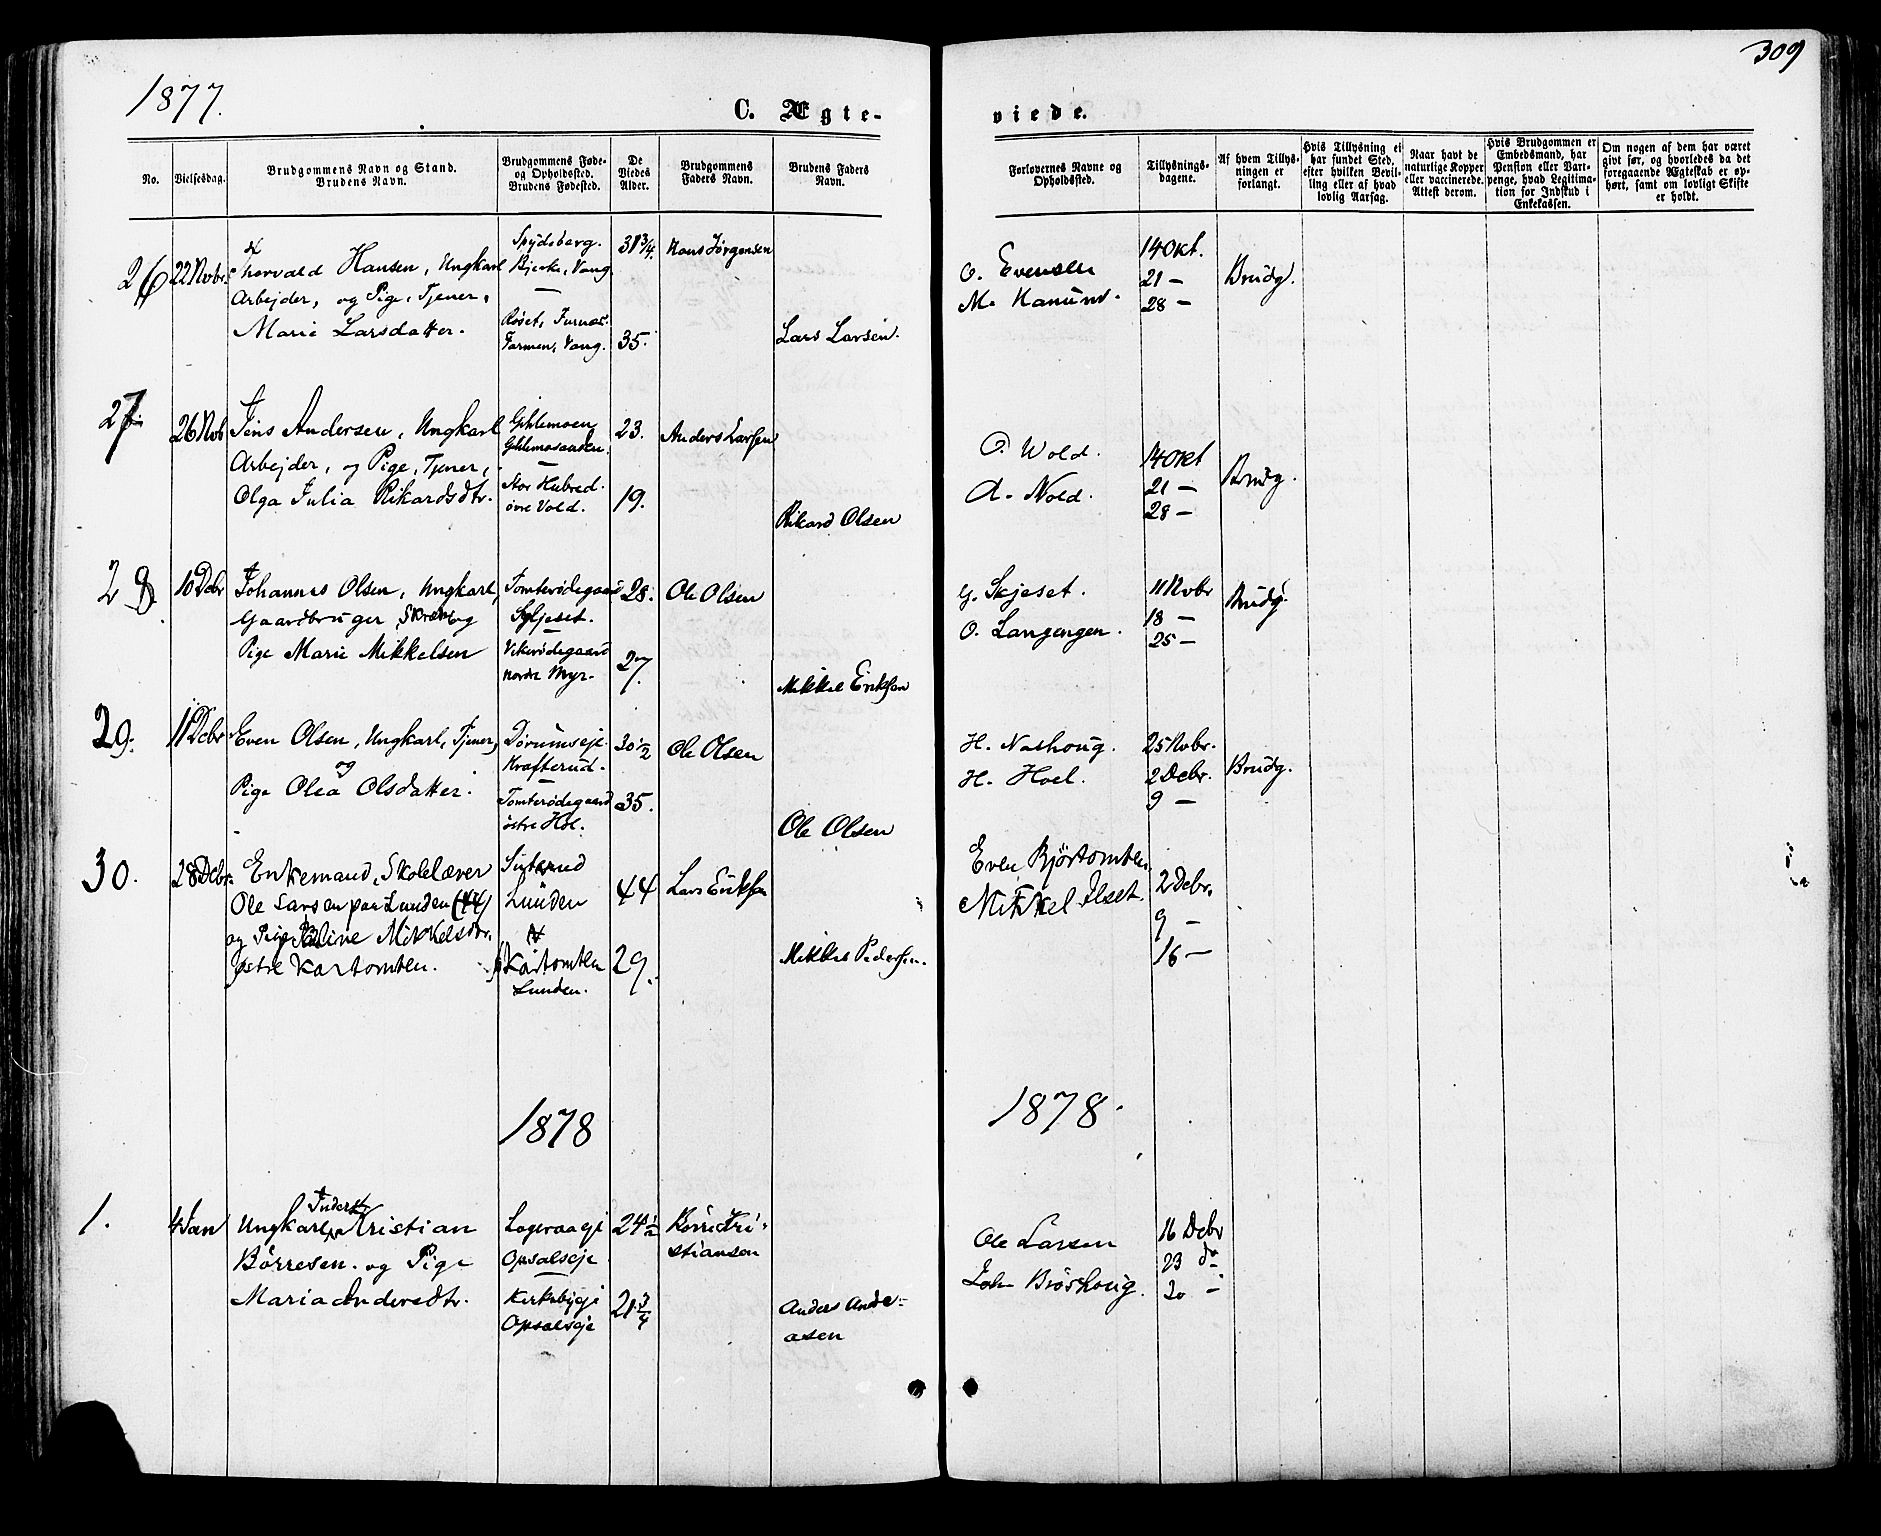 309
1877.
C. Ægte-
viede.
No.
Vielsesdag.
Brudgommens Navn og Stand.
Brudens Navn.
Brudgommens Føde-
og Opholdssted.
Brudens Fødested.
De
Viedes
Alder.
Brudgommens
Faders Navn.
Brudens Faders
Navn.
Forlovernes Navne og
Opholdssted.
Tillysnings-
dagene.
Af hvem Tillys-
ningen er
forlangt.
Hvis Tillysning ei
har fundet Sted,
efter hvilken Bevil-
ling eller af hvad
lovlig Aarsag.
Naar havt de
naturlige Kopper
eller vaccinerede.
Attest derom.
Hvis Brudgommen er
Embedsmand, har
Pension eller Vart-
penge, hvad Legitima-
tion for Indskud i
Enkekassen.
Om nogen af dem har været
givt før, og hvorledes da det
foregaaende Ægteskab er op-
hørt, samt om lovligt Skifte
er holdt.
26
22 Novbr.
Thorvald Hansen, Ungkarl
Arbejder, og Pige, Tjener,
Marie Larsdatter.
Spydeberg.
Bjerke, Vang.
Røset, Furnæs.
Farmen, Vang.
31 3/4.
35.
Hans Jørgensen
Lars Larsen.
O. Evensen
M.
14 Okt.
21 —
28 —
Brudg.
27
26 Nov
Jens Andersen, Ungkarl
Arbejder, og Pige, Tjener,
Olga Julia Rikardsdtr.
Gihlemoen
Stor Hubred.
øvre Vold.
23.
19.
Anders Larsen
Rikard Olsen
O. Wold.
A. Nold.
14 Okt
21 —
28 —
Brudg.
28.
10 Debr
Johannes Olsen, Ungkarl,
Gaardbruger, og
Pige Marie Mikkelsen
Tomterødegaard
Skjeset.
Vikerødegaard
nordre Myr.
28.
27.
Ole Olsen
Mikkel Eriksen
G. Skjeset.
O. Langengen.
11 Novbr
18 —
25 —
Brudg.
29.
11 Debr
Even Olsen, Ungkarl, Tjener,
og
Pige Olea Olsdatter.
Dørumseje.
Krafterud.
Tomterødegaard
østre Hol.
30 1/2
35.
Ole Olsen
Ole Olsen
H. Nashoug.
H. Hoel.
25 Novbr.
2 Debr.
9 —
Brudg.
30.
28 Debr.
Enkemand, Skolelærer
Ole Larsen paa Lunden (44)
og Pige Pauline Mikkelsdtr.
Østre Kartomten.
Lunden
Kartomten
Lunden.
44
29.
Lars Eriksen
Mikkel Pedersen.
Even Bjørtomten
Mikkel Ilset.
2 Debr.
9 —
16 —
1878
1878.
1.
4 Jan
Inderst
Ungkarl, Kristian
Børresen. og Pige
Maria Andersdtr.
Lageraaeje
Opsalseje
Kirkebyeje
Opsalseje
24 1/2
21 3/4
Børre Kri-
stiansen
Anders Ande-
asen
Ole Larsen
Joh. Brøshoug.
16 Debr
23 do
30 —